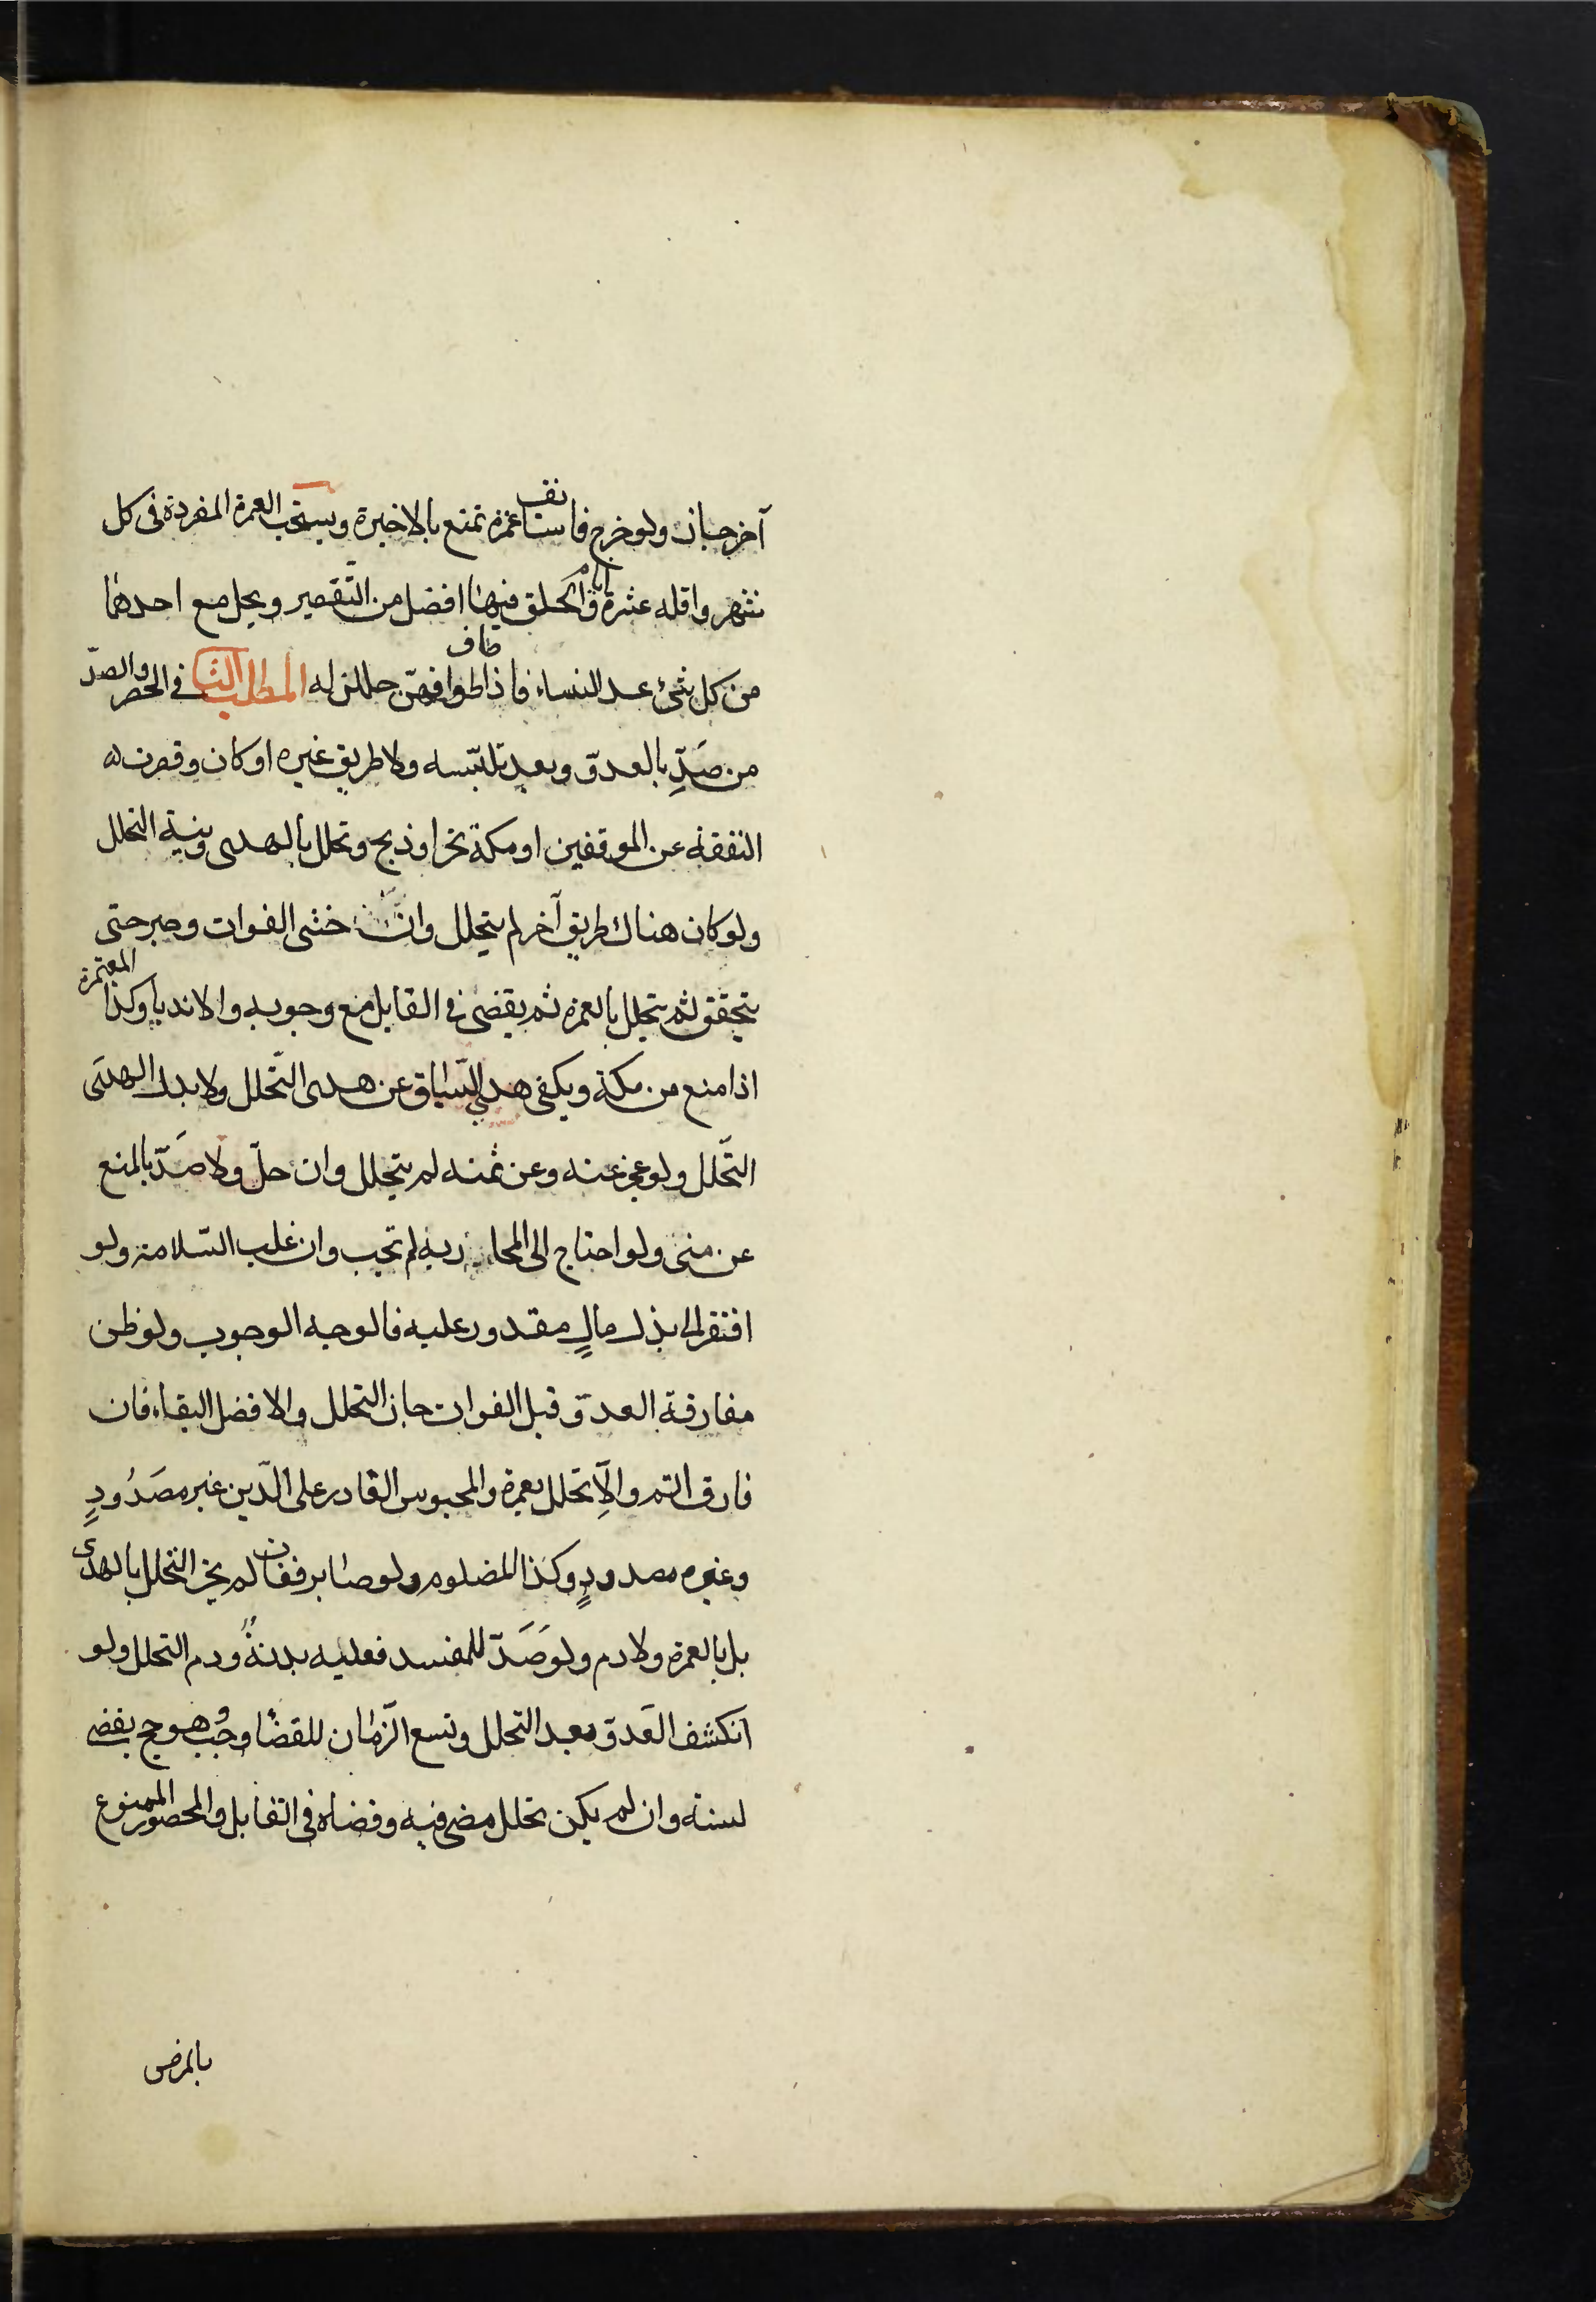 آخر جاز ولو خرج فاستانف عمرة تمتع بالاخيرة ويستحب العمرة المفردة فى كل
شهر واقله عشرة ايام والحلق فيها افضل من التقصير ويحل مع احدهما
من كل شئ عدا النساء فاذا طاف طوافهنّ حللن له المطلب الثا فى الحصر والصدّ
من صَدِّ بالعدوّ وبعد تلبّسه ولا طريق غيره او كان وقصرت
النفقة عن الموقفين او مكة نحر او ذبح وتحلل بالهدى ونية التحلل
ولو كان هناك طريق آخر لم يتحلل وان خشى الفوات وصبر حتى
يتحقق ثم يتحلل بالعمرة ثم يقضى فى القابل مع وجوبه والا ندبا وكذا المعتمرة
اذا منع من مكة ويكفى هدى السّياق عن هدى التّحلل ولا بدل الهدى
التّحلل ولو عجز عنه وعن ثمنه لم يتحلل وان حلّ ولا صَدّ بالمنع
عن منى ولو احتاج الى المحاربة لم تجب وان غلب السّلامة ولو
افتقر الى بذل مالٍ مقدور عليه فالوجه الوجوب ولو ظن
مفارقة العدوّ قبل الفوات جاز التحلل والافضل البقاء فان
فارق اتم والاّ تحلل بعمرة والمحبوس القادر على الدّين غير مصَدُودٍ
وغيره مصدودٍ وكذا المضلوم ولو صابر ففات لم يجز التحلل بالهدى
بل بالعمرة ولا دم ولو صَدّ للمفسد فعليه بدنةٌ ودم التحلل ولو
انكشف العَدوّ بعد التحلل وتسع الزّمان للقضا وجب وهو حج يقضى
لسنته وان لم يكن تحلل مضى فيه وقضاه فى القابل والمحصور الممنوع
بالمرض